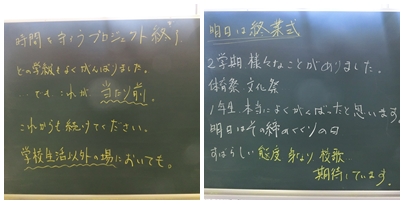 時間を守ろうプロジェクト終了
どの学級もよくがんばりました。
…でも これが 当たり前。
これからも続けてください。
学校生活以外の場においても。
明日は終業式
2学期 様々なことがありました。
体育祭 文化祭
1年生、本当によくがんばったと思います。
明日はその締めくくりの日
すばらしい態度 身なり 校歌…
期待しています。